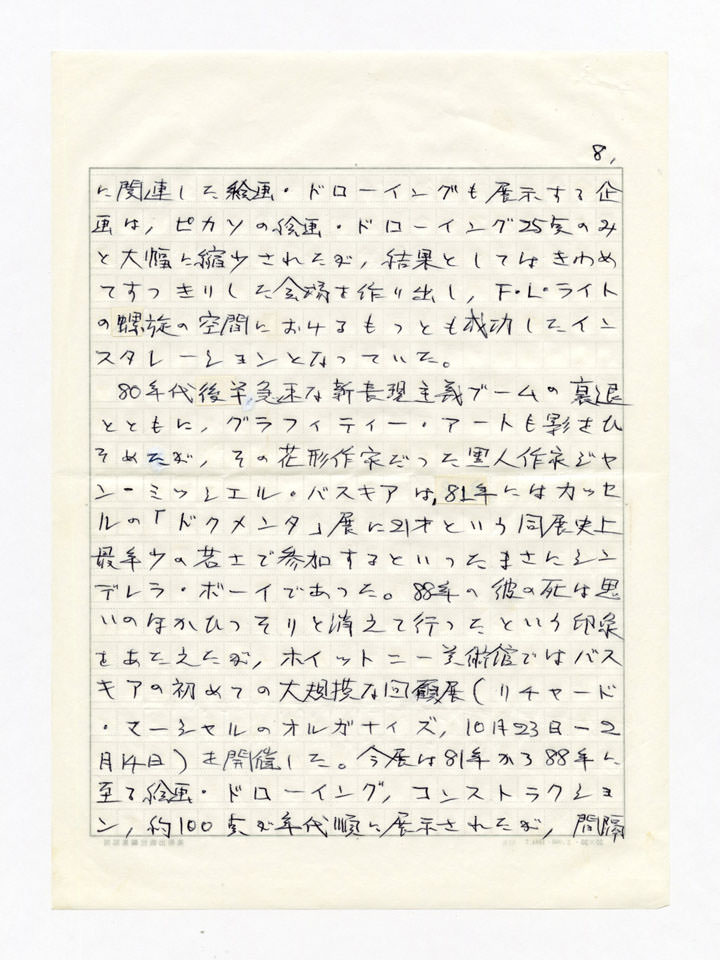 8,
に関連した絵画・ドローイングも展示する企
画は,ピカソの絵画・ドローイング25点のみ
と大幅に縮少されたが,結果としてはきわめ
てすっきりした会場を作り出し,F・L・ライト
の螺旋の空間におけるもっとも成功したイン
スタレーションとなっていた。
80年代後半急速な新表現主義ブームの衰退
とともに,グラフィティー・アートも影をひ
そめたが,その花形作家だった黒人作家ジャ
ン−ミッシェル・バスキアは,81年にはカッセ
ルの「ドクメンタ」展に21才という同展史上
最年少の若さで参加するといったまさにシン
デレラ・ボーイであった。88年の彼の死は思
いのほかひっそりと消えて行ったという印象
をあたえたが,ホイットニー美術館ではバス
キアの初めての大規模な回顧展(リチャード
・マーシャルのオルガナイズ,10月23日−2
月14日)を開催した。今展は81年から88年に
至る絵画・ドローイング,コンストラクショ
ン,約100点が年代順に展示されたが,間隔